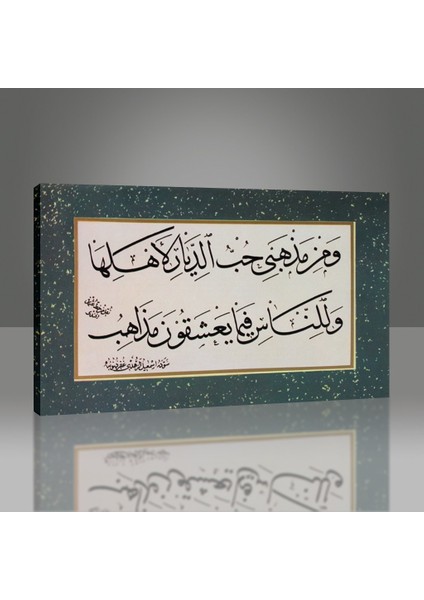 ومن مذهبي حب الديار لأهلها
وللناس فيما يعشقون مذاهب